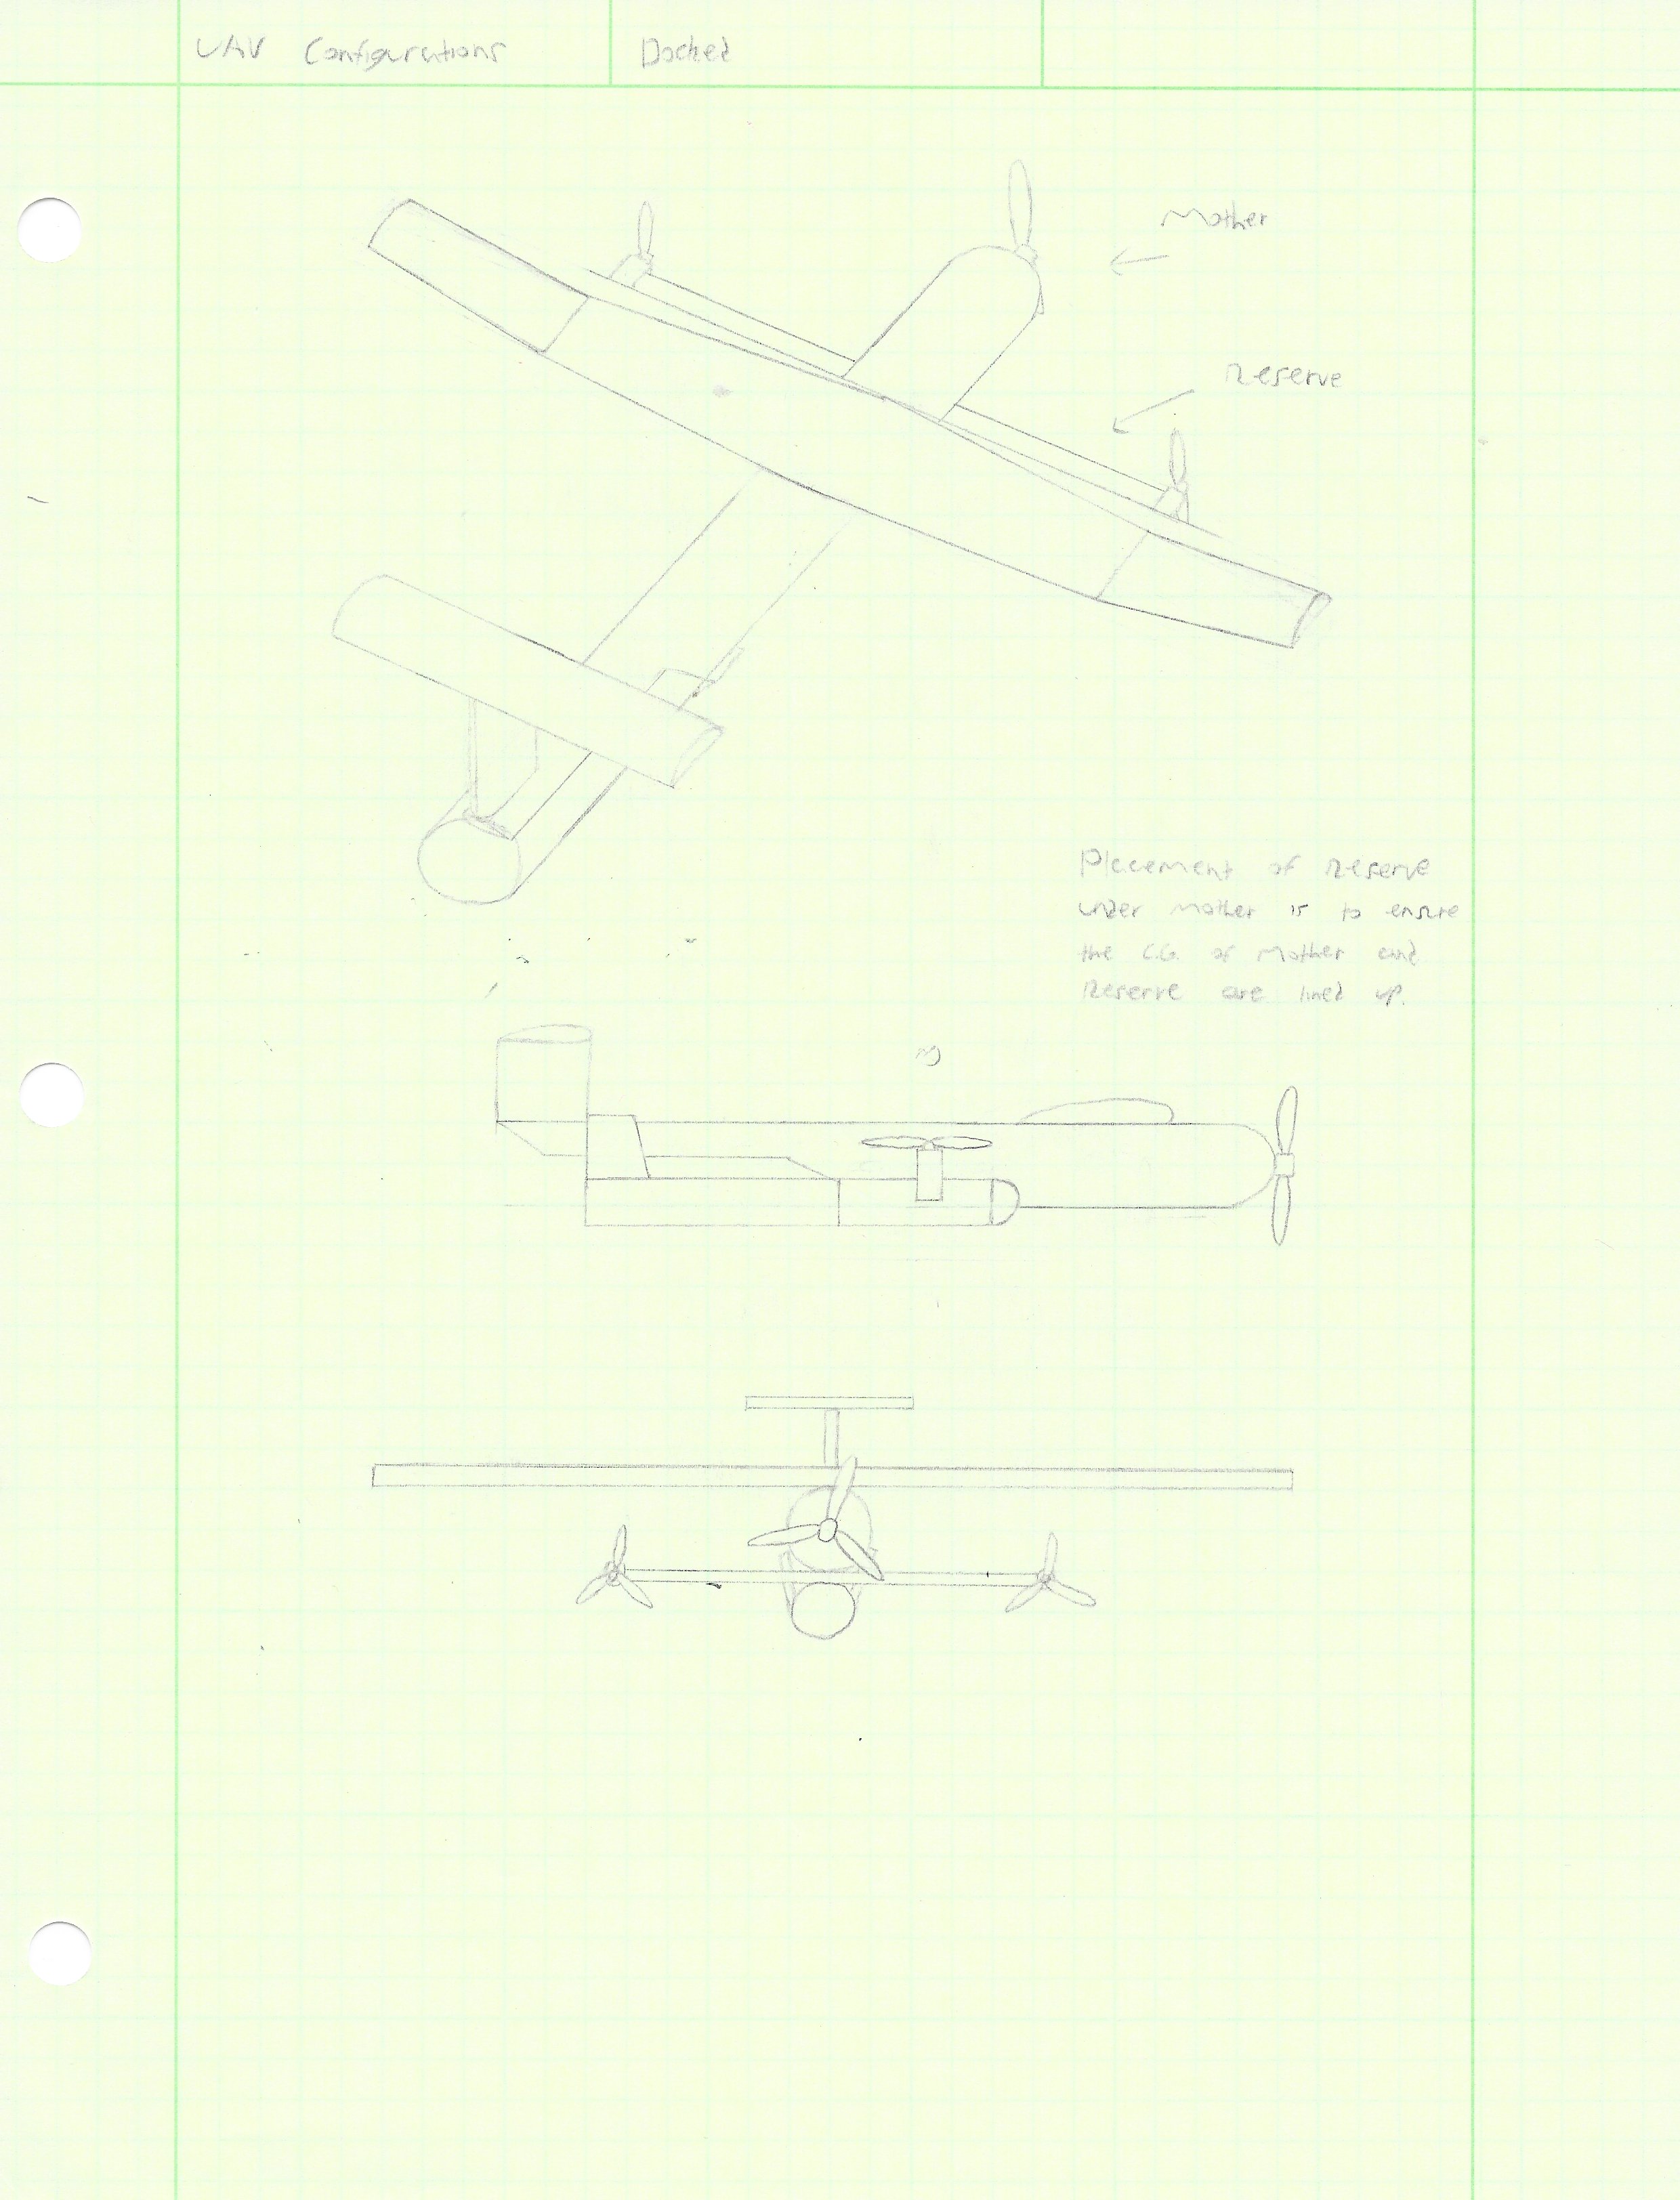 UAV Configurations
Docked
Mother
Reserve
Placement of Reserve
under Mother is to ensure
the C.G. of Mother and
Reserve are lined up.